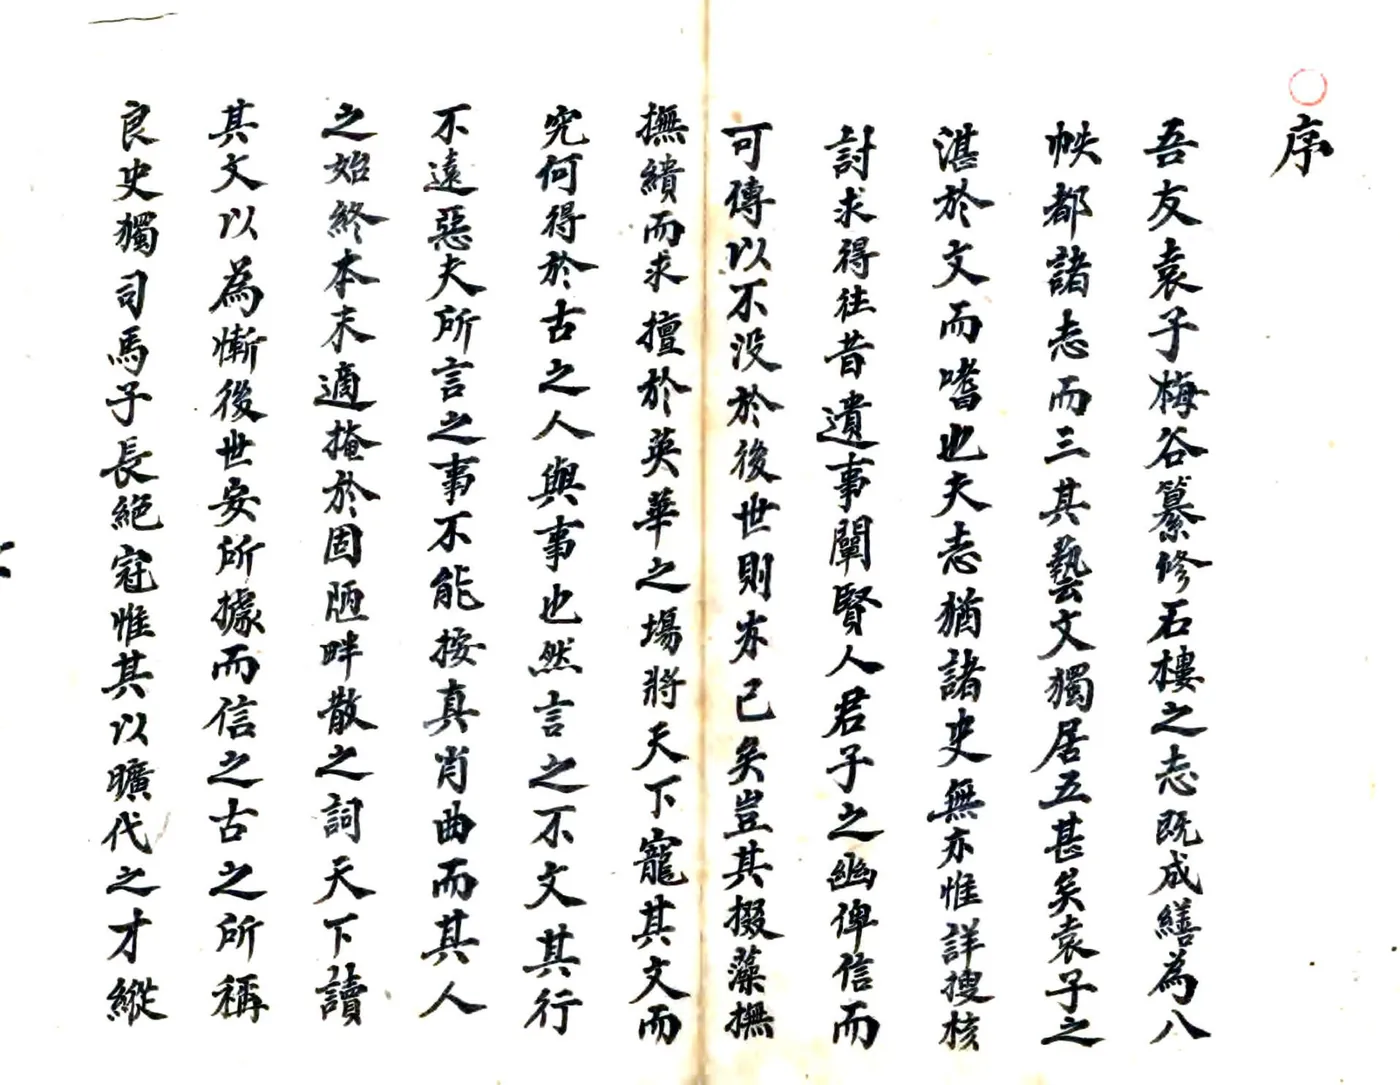 序
吾友袁子梅谷纂修石樓之志既成繕為八
帙都諸志而三其藝文獨居五甚矣袁子之
湛於文而嗜也夫志猶諸史無亦惟詳搜核
討求得往昔遺事闡賢人君子之幽俾信而
可傳以不没於後世則亦已矣豈其掇藻撫
撫繢而求擅於英華之場將天下寵其文而
究何得於古之人與事也然言之不文其行
不遠惡夫所言之事不能按真肖曲而其人
之始終本末適掩於固陋畔散之詞天下讀
其文以為慚後世安所據而信之古之所稱
良史獨司馬子長絕冠惟其以曠代之才縱